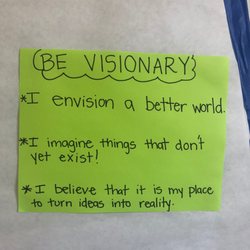 BE VISIONARY
*I envision a better world.
*I imagine things that don't
yet exist!
* I believe that it is my place
to turn ideas into reality.